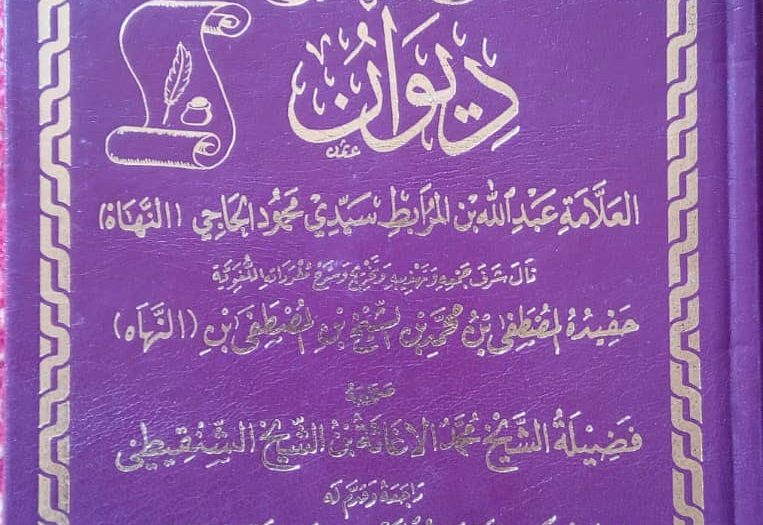 ديوان
العلامة عبد الله بن المرابط سيدي محمود الحاجي (النهاة)
نال شرف جمعه وتهذيبه وتخريج وشرح مفرداته اللغوية
حفيده المصطفى بن محمد بن الشيخ بن المصطفى ابن (النهاه)
فضيلة الشيخ محمد الأمانة بن الشيخ الشنقيطي
راجعه وقدم له